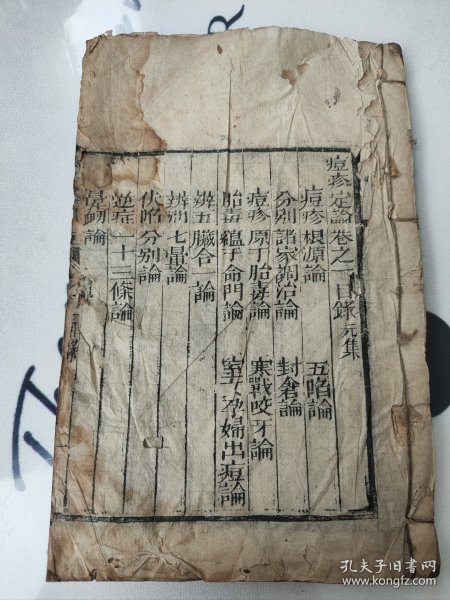 痘疹定論卷之一目錄元集
痘疹根源論
五陷論
分別諸家治論
封倉論
痘疹原于胎毒論
寒戰咬牙論
胎毒蘊于命門論
室女孕婦出痘論
辨五臟合一論
辨別七暈論
伏陷分別論
逆症二十三條論
論
孔夫子旧书网
www.kongfz.com